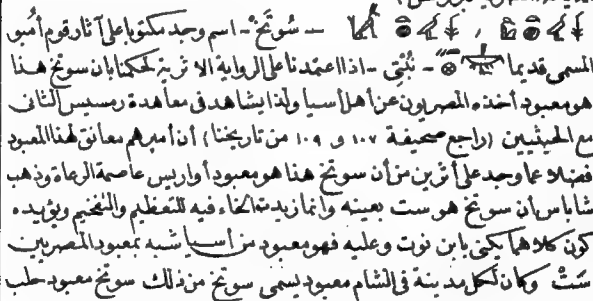 سُوتَخْ - اسم وجد مكتوبا على آثار قوم أُمبو
المسمى قديما نُبْتِى - اذا اعتمدنا على الرواية الاثرية لحكمنا بان سوتخ هذا
هو معبود أخذه المصريون عن أهل أسيا ولذا يشاهد فى معاهدة رمسيس الثانى
مع الحيثيين (راجع صحيفة ١٠٧ و ١٠٩ من تاريخنا) أن أميرهم معانق لهذا المعبود
فضلا عما وجد على أثرين من أن سوتخ هذا هو معبود أواريس عاصمة الرعاة وذهب
شاباس أن سوتخ هو ست بعينه وانما زيدت الخاء فيه للتعظيم والتفخيم ويؤيده
كون كلاهما يكنى بابن نوت وعليه فهو معبود من أسيا شبه بمعبود المصريين
سَتْ وكان لكل مدينة فى الشام معبود يسمى سوتخ من ذلك سوتخ معبود حلب